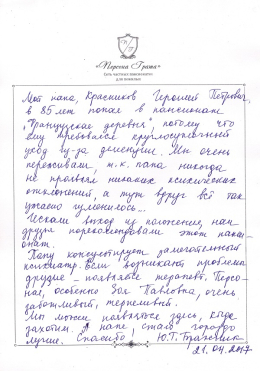 «Персона Грата»
Сеть частных пансионатов
для пожилых
Мой папа, Красников Герольд Петрович,
в 85 лет попал в пансионат
„Французская деревня", потому что
ему требовался круглосуточный
уход из-за деменции. Мы очень
переживали, т.к. папа никогда
не проявлял никаких психических
отклонений, а тут вдруг всё так
ужасно изменилось...
Искали выход из положения, нам
друзья порекомендовали этот панси-
онат.
Папу консультирует замечательный
психиатр. Если возникают проблемы
другие – появляется терапевт. Персо-
нал, особенно Зоя Павловна, очень
заботливый, терпеливый.
Мы можем появляться здесь, когда
захотим. А папе стало гораздо
лучше. Спасибо,
21.04.2017